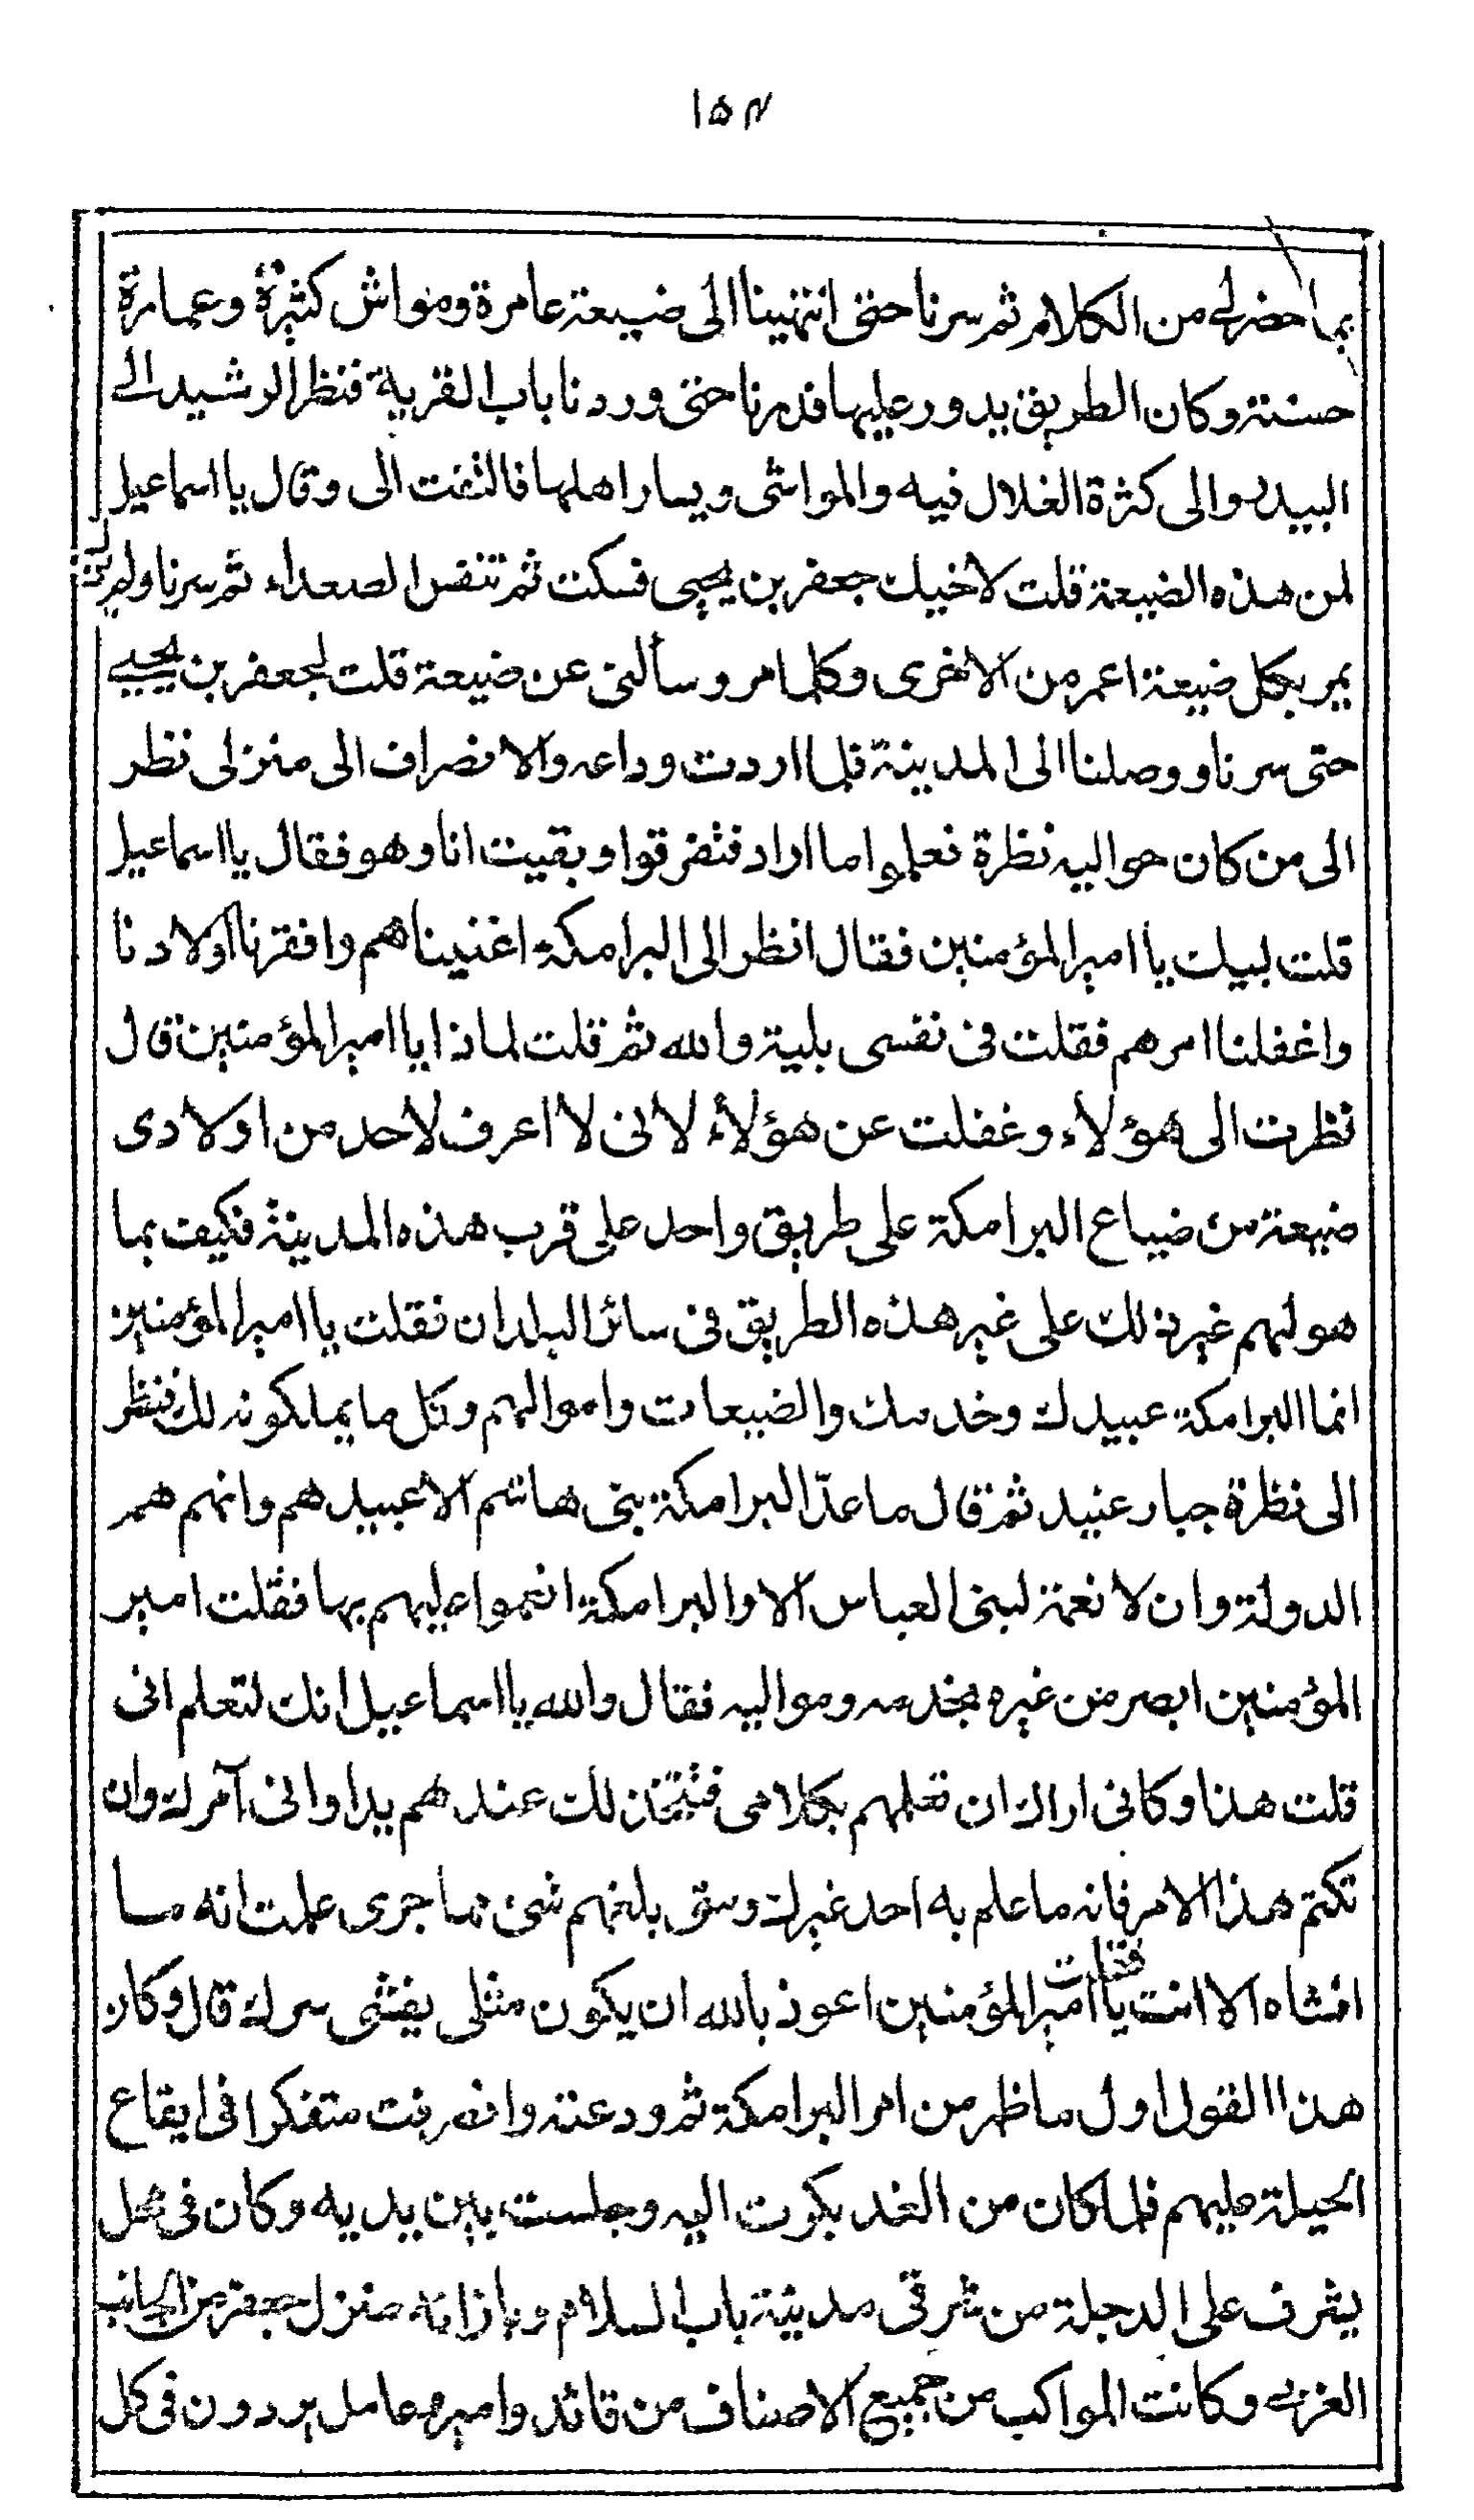 ١٥٢
بما حضر لي من الكلام ثم سرنا حتى انتهينا الى ضيعة عامرة ومواش كثيرة وعمارة
حسنة وكان الطريق يدور عليها فدرنا حتى وردنا باب القرية فنظر الرشيد الى
البيدر والى كثرة الغلال فيه والمواشى ويسار اهلها فالتفت الى وقال يا اسماعيل
لمن هذه الضيعة قلت لاخيك جعفر بن يحيى فسكت ثم تنفس الصعداء ثم سرنا ولم يزل
يمر بكل ضيعة اعمر من الاخرى وكلما مر وسألنى عن ضيعة قلت لجعفر بن يحيى
حتى سرنا ووصلنا الى المدينة فلما اردت وداعه والانصراف الى منزلى نظر
الى من كان حواليه نظرة فعلموا ما اراد فتفرقوا وبقيت انا وهو فقال يا اسماعيل
قلت لبيك يا امير المؤمنين فقال انظر الى البرامكة اغنيناهم وافقرنا اولادنا
واغفلنا امرهم فقلت فى نفسى بلية والله ثم قلت لماذا يا امير المؤمنين قال
نظرت الى هؤلاء وغفلت عن هؤلاء لانى لا اعرف لاحد من اولادى
ضيعة من ضياع البرامكة على طريق واحد على قرب هذه المدينة فكيف بما
هو لهم غير ذلك على غير هذه الطريق فى سائر البلدان فقلت يا امير المؤمنين
انما البرامكة عبيدك وخدمك والضيعات واموالهم وكل ما يملكونه لك فنظر
الى نظرة جبار عنيد ثم قال ما عدّ البرامكة بنى هاشم الا عبيدهم وانهم هم
الدولة وان لا نعمة لبنى العباس الا والبرامكة انعموا عليهم بها فقلت امير
المؤمنين ابصر من غيره بخدمه ومواليه فقال والله يا اسماعيل انك لتعلم انى
قلت هذا وكانى اراك ان تعلمهم بكلامى فتتخذ لك عندهم يدا وانى آمرك وان
تكتم هذا الامر فانه ما علم به احد غيرك ومتى بلغهم شئ مما جرى علمت انه ما
افشاه الا انت فقلت يا امير المؤمنين اعوذ بالله ان يكون مثلى يفشى سرك قال وكان
هذا القول اول ما ظهر من امر البرامكة ثم ودعته وانصرفت متفكرا فى ايقاع
الحيلة عليهم فلما كان من الغد بكرت اليه وجلست بين يديه وكان فى محل
يشرف على الدجلة من شرقى مدينة باب السلام وبازائه منزل جعفر من الجانب
الغربى وكانت المواكب من جميع الاصناف من قائد وامير وعامل يردون فى كل